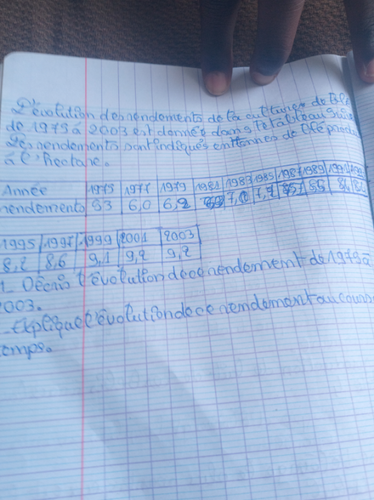 L'évolution des rendements de la culture de blé
de 1975 à 2003 est donnée dans le tableau
Les rendements sont indiqués en tonnes de blé
à l'hectare.
Année 1975 1977 1979 1981 1983 1985 1987 1989
rendements 5,3 6,0 6,2 7,0 7,7
1995 1997 1999 2001 2003
8,2 8,6 9,1 9,2 9,2
1. Décris l'évolution de ce rendement de 1975 à
2003.
Explique l'évolution de ce rendement au cours
temps.